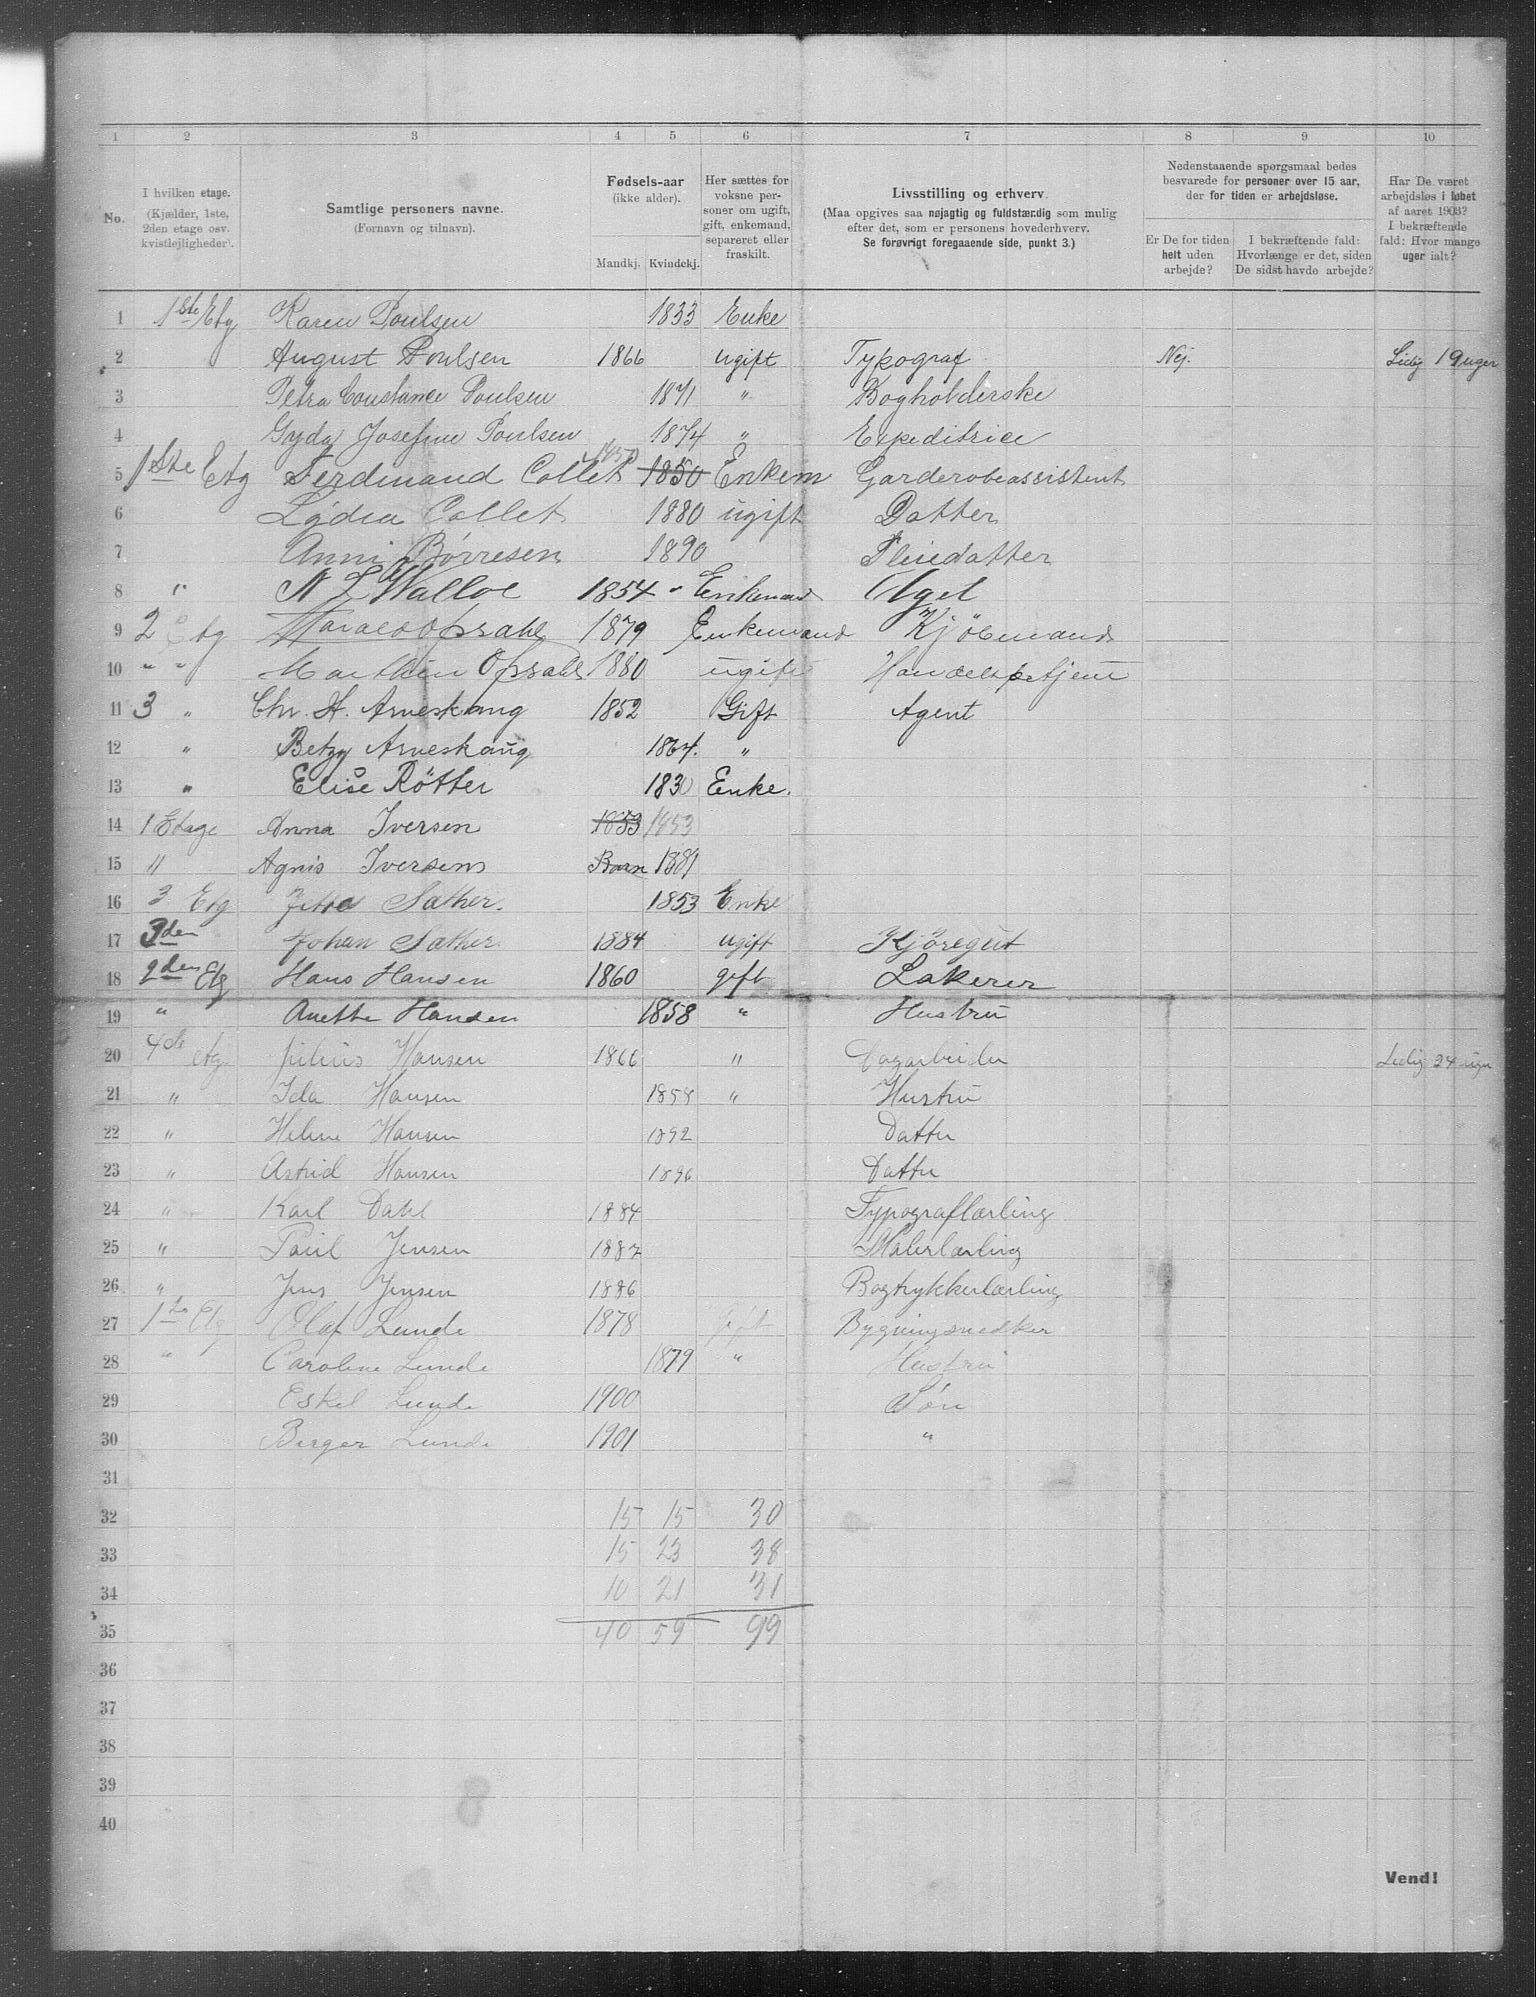 1 2 3 4 5 6 7 8 9 10
No.
I hvilken etage.
(Kjælder, 1ste,
2den etage osv.
kvistlejligheder).
Samtlige personers navne.
(Fornavn og tilnavn).
Fødsels-aar
(ikke alder).
Mandkj. Kvindekj.
Her sættes for
voksne per-
soner om ugift,
gift, enkemand,
separeret eller
fraskilt.
Livsstilling og erhverv.
(Maa opgives saa nøjagtig og fuldstændig som mulig
efter det, som er personens hovederhverv.
Se forøvrigt foregaaende side, punkt 3.)
Nedenstaaende spørgsmaal bedes
besvarede for personer over 15 aar,
der for tiden er arbejdsløse.
Er De for tiden
helt uden
arbejde?
I bekræftende fald:
Hvorlænge er det, siden
De sidst havde arbejde?
Har De været
arbejdsløs i løbet
af aaret 1903?
I bekræftende
fald: Hvor mange
uger ialt?
1 1ste Etg Karen Poulsen 1833 Enke
2 August Poulsen 1866 ugift Typograf Nej. Ledig 19 uger
3 Petra Constance Poulsen 1871 " Bogholderske
4 Gyda Josefine Poulsen 1874 " Expeditrice
5 1ste Etg Ferdinand Collet 1850 1850 Enkem Garderobeassistent
6 Lydia Collet 1880 ugift Datter
7 Anni Børresen 1890 Pleiedatter
8 " N L Walloe 1854 " Enkemand
9 2 Etg Opsahl 1879 Enkemand Kjöbmand
10 " " Opsahl 1880 ugift Handelsbetjent
11 3 " Chr. H. Arneskaug 1852 Gift Agent
12 " Betzy Arneskaug 1864. "
13 " Elise Rötter 1830 Enke.
14 1 Etage Anna Iversen 1853 1853
15 " Agnis Iversen Barn 1881
16 3 Etg Sæther. 1853 Enke
17 3den Johan Sæther 1884 ugift Kjöregut
18 2den Etg Hans Hansen 1860 gift Lakerer
19 " Anette Hansen 1858 " Hustru
20 4de Etg Julius Hansen 1866 " Dagarbeider Ledig 24 uger
21 " Ida Hansen 1858 " Hustru
22 " Helene Hansen 1892 Datter
23 " Astrid Hansen 1896 Datter
24 " Karl Dahl 1884 Typograflærling
25 " Paul Jensen 1887 Malerlærling
26 " Jens Jensen 1886 Bogtrykkerlærling
27 1ste Etg Olaf Lunde 1878 gift Bygningsnedker
28 " Caroline Lunde 1879 " Hustru
29 Eskel Lunde 1900 Søn
30 Birger Lunde 1901 "
31
32 15 15 30
33 15 23 38
34 10 21 31
35 40 59 99
36
37
38
39
40
Vend!